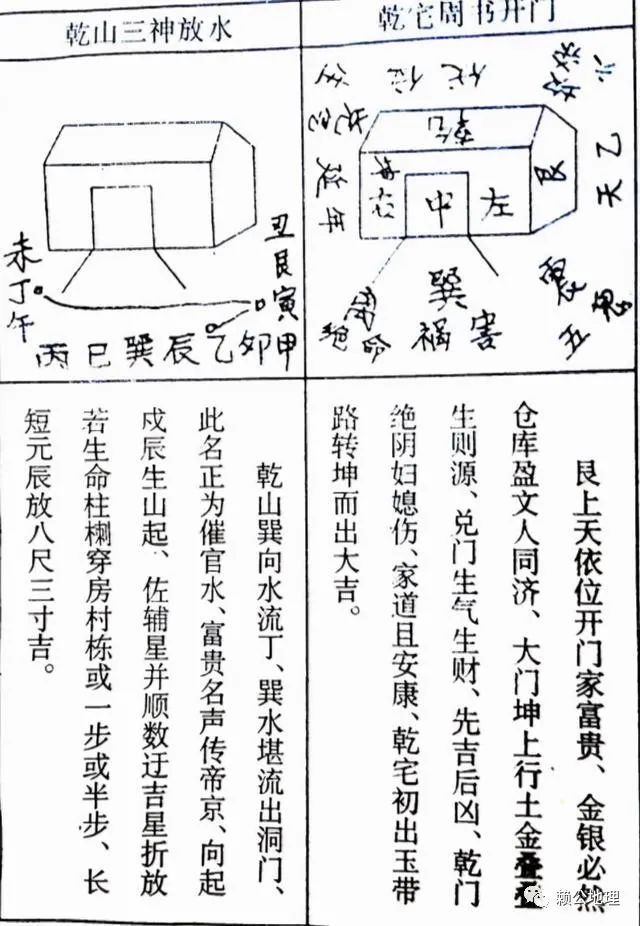 乾宅周书开门
乾山三神放水
六
天乙
艮
伏位
乾
延年
中
左
巽
祸害
绝命
五
鬼
未
丁
午
丑
艮
寅
丙巳巽辰乙卯甲
艮上天依位开门家富贵、金银必然
仓库盈文人同济、大门坤上行土金叠叠
生则源、兑门生气生财、先吉后凶、乾门
绝阴妇媳伤、家道且安康、乾宅初出玉带
路转坤而出大吉。
乾山巽向水流丁、巽水堪流出洞门、
此名正为催官水、富贵名声传帝京、向起
戍辰生山起、佐辅星并顺数迂吉星折放
若生命柱栵穿房村栋或一步或半步、长
短元辰放八尺三寸吉。
赖公地理